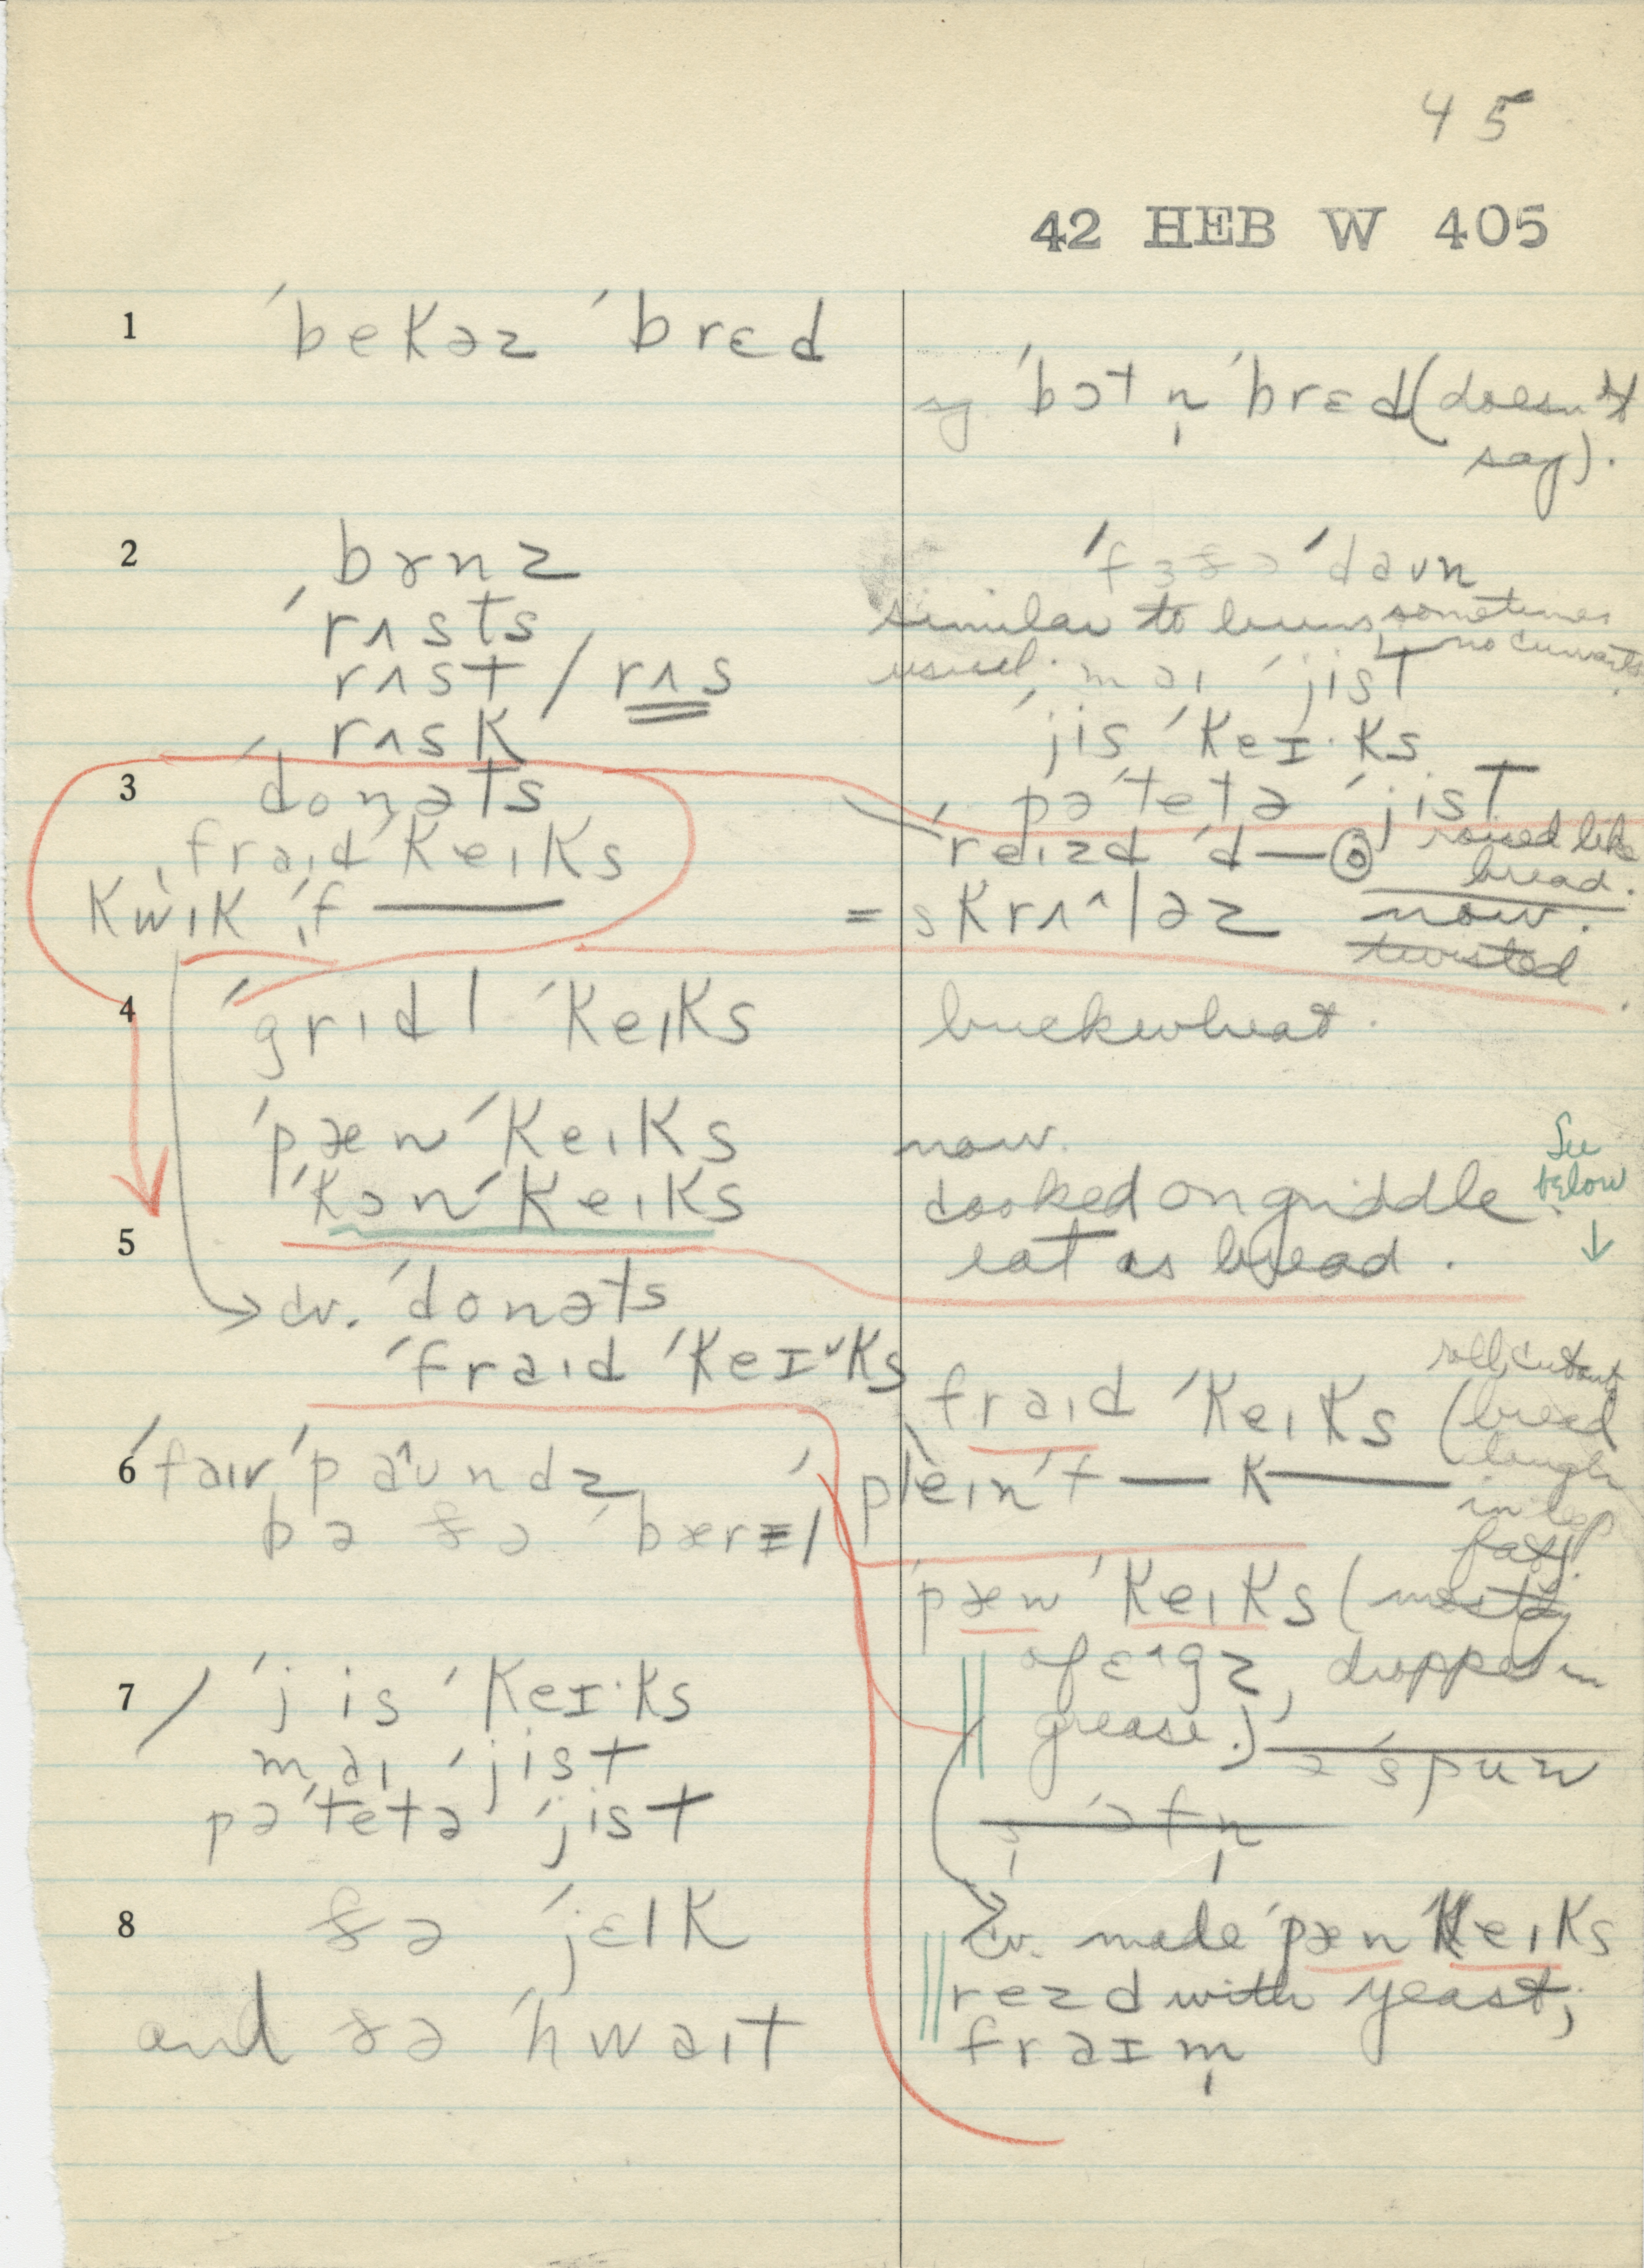 45
42 HEB W 405
1 ˈbekəz ˈbrɛd
ˈbɔtn̩ ˈbrɛd (doesn't
say).
2 bɤnz
ˈrʌsts
rʌst / rʌs
rʌsk
ˈdaʊn
similar to buns, sometimes
no currants.
usual. maɪ ˈjist
ˈjis ˈkeɪ·ks
pəˈtetə ˈjist
3 ˈdonəts
ˈfraɪd ˈkeɪks
kwɪk ˈf——
ˈreɪzd ˈd—③ raised like
bread.
= skrʌ^ləz now.
twisted
4 ˈgrɪdl ˈkeɪks
buckwheat.
ˈpæn ˈkeɪks
now.
ˈkɔn ˈkeɪks
cooked on griddle.
eat as bread.
See
below
↓
5
→ cv. ˈdonəts
ˈfraɪd ˈkeɪ˅ks
fraɪd ˈkeɪks (roll, cut out,
bread
dough
in deep
fat).
ˈpleɪn f—— k——
6 ˈfaɪv ˈpa^ʊndz
pə ðə ˈbærɪl
ˈpæn ˈkeɪks (mostly
of ɛ^gz, dropped in
grease.) əˈspun
7 / ˈjis ˈkeɪ·ks
maɪ ˈjist
pəˈtetə ˈjist
8 ðə ˈjɛlk
and ðə ˈhwaɪt
cv. made ˈpæn ˈkeɪks
rezd with yeast;
fraɪm̩